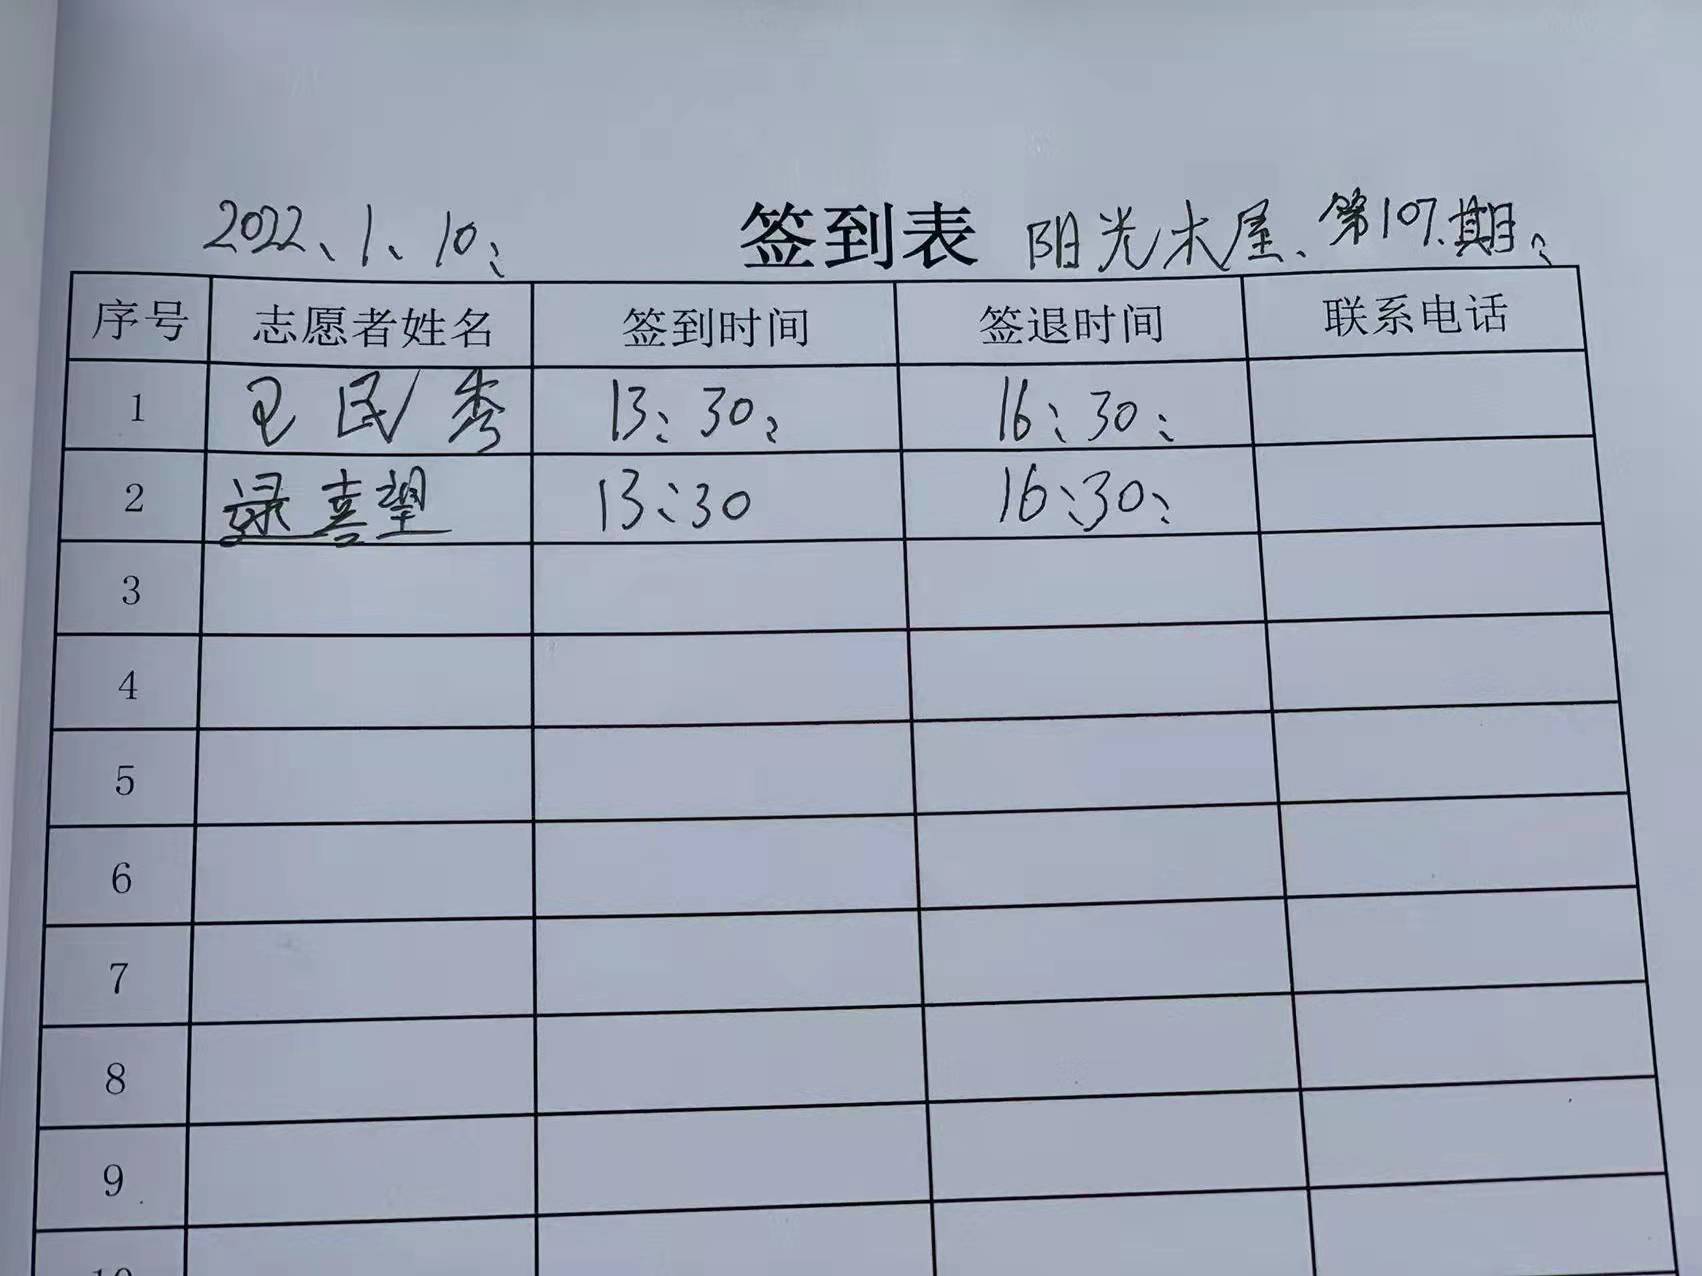 2022、1、10、 签到表 阳光木屋、第107.期、
序号 志愿者姓名 签到时间 签退时间 联系电话
1 民秀 13:30: 16:30:
2 逯喜望 13:30 16:30:
3
4
5
6
7
8
9
10